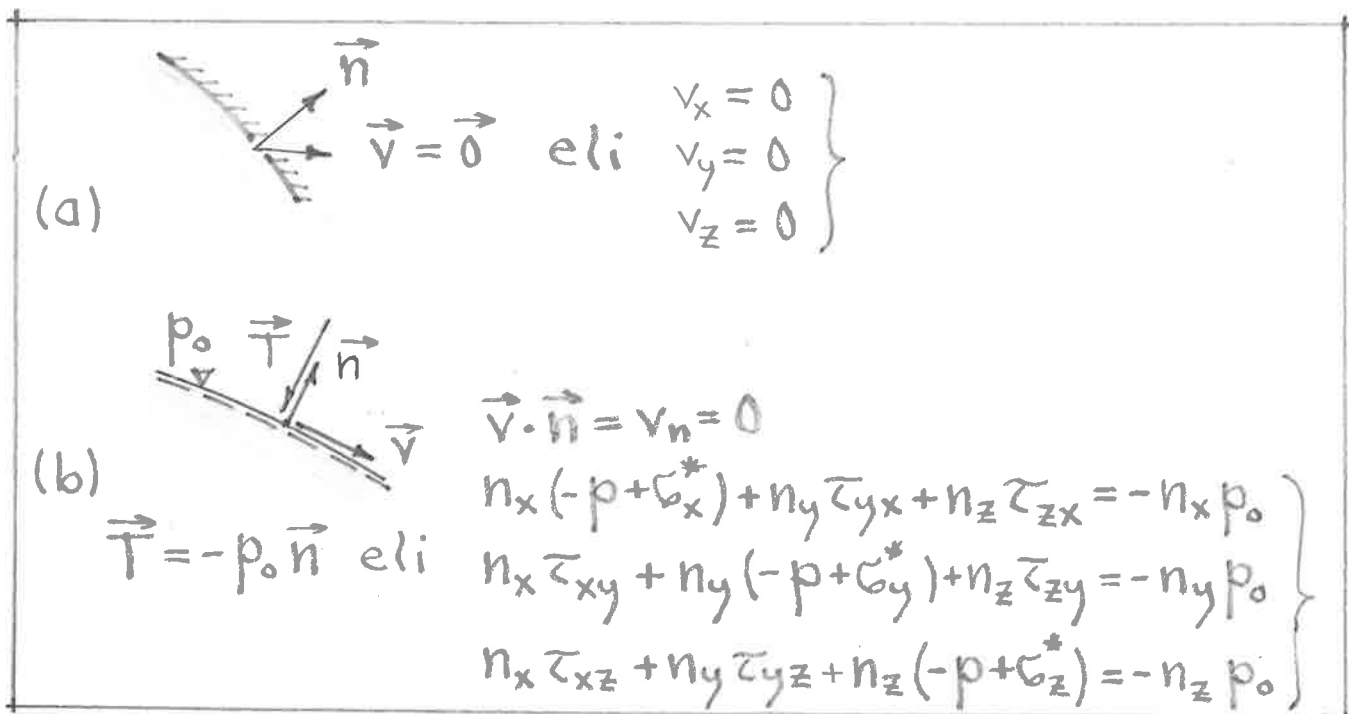 n⃗
v⃗ = 0⃗ eli
v_x = 0
v_y = 0
v_z = 0
(a)
p₀ T⃗ n⃗
v⃗
v⃗·n⃗ = v_n = 0
(b)
T⃗ = -p₀n⃗ eli
n_x(-p+σ_x^*)+n_y τ_yx+n_z τ_zx = -n_x p₀
n_x τ_xy + n_y(-p+σ_y^*)+n_z τ_zy = -n_y p₀
n_x τ_xz + n_y τ_yz + n_z(-p+σ_z^*) = -n_z p₀